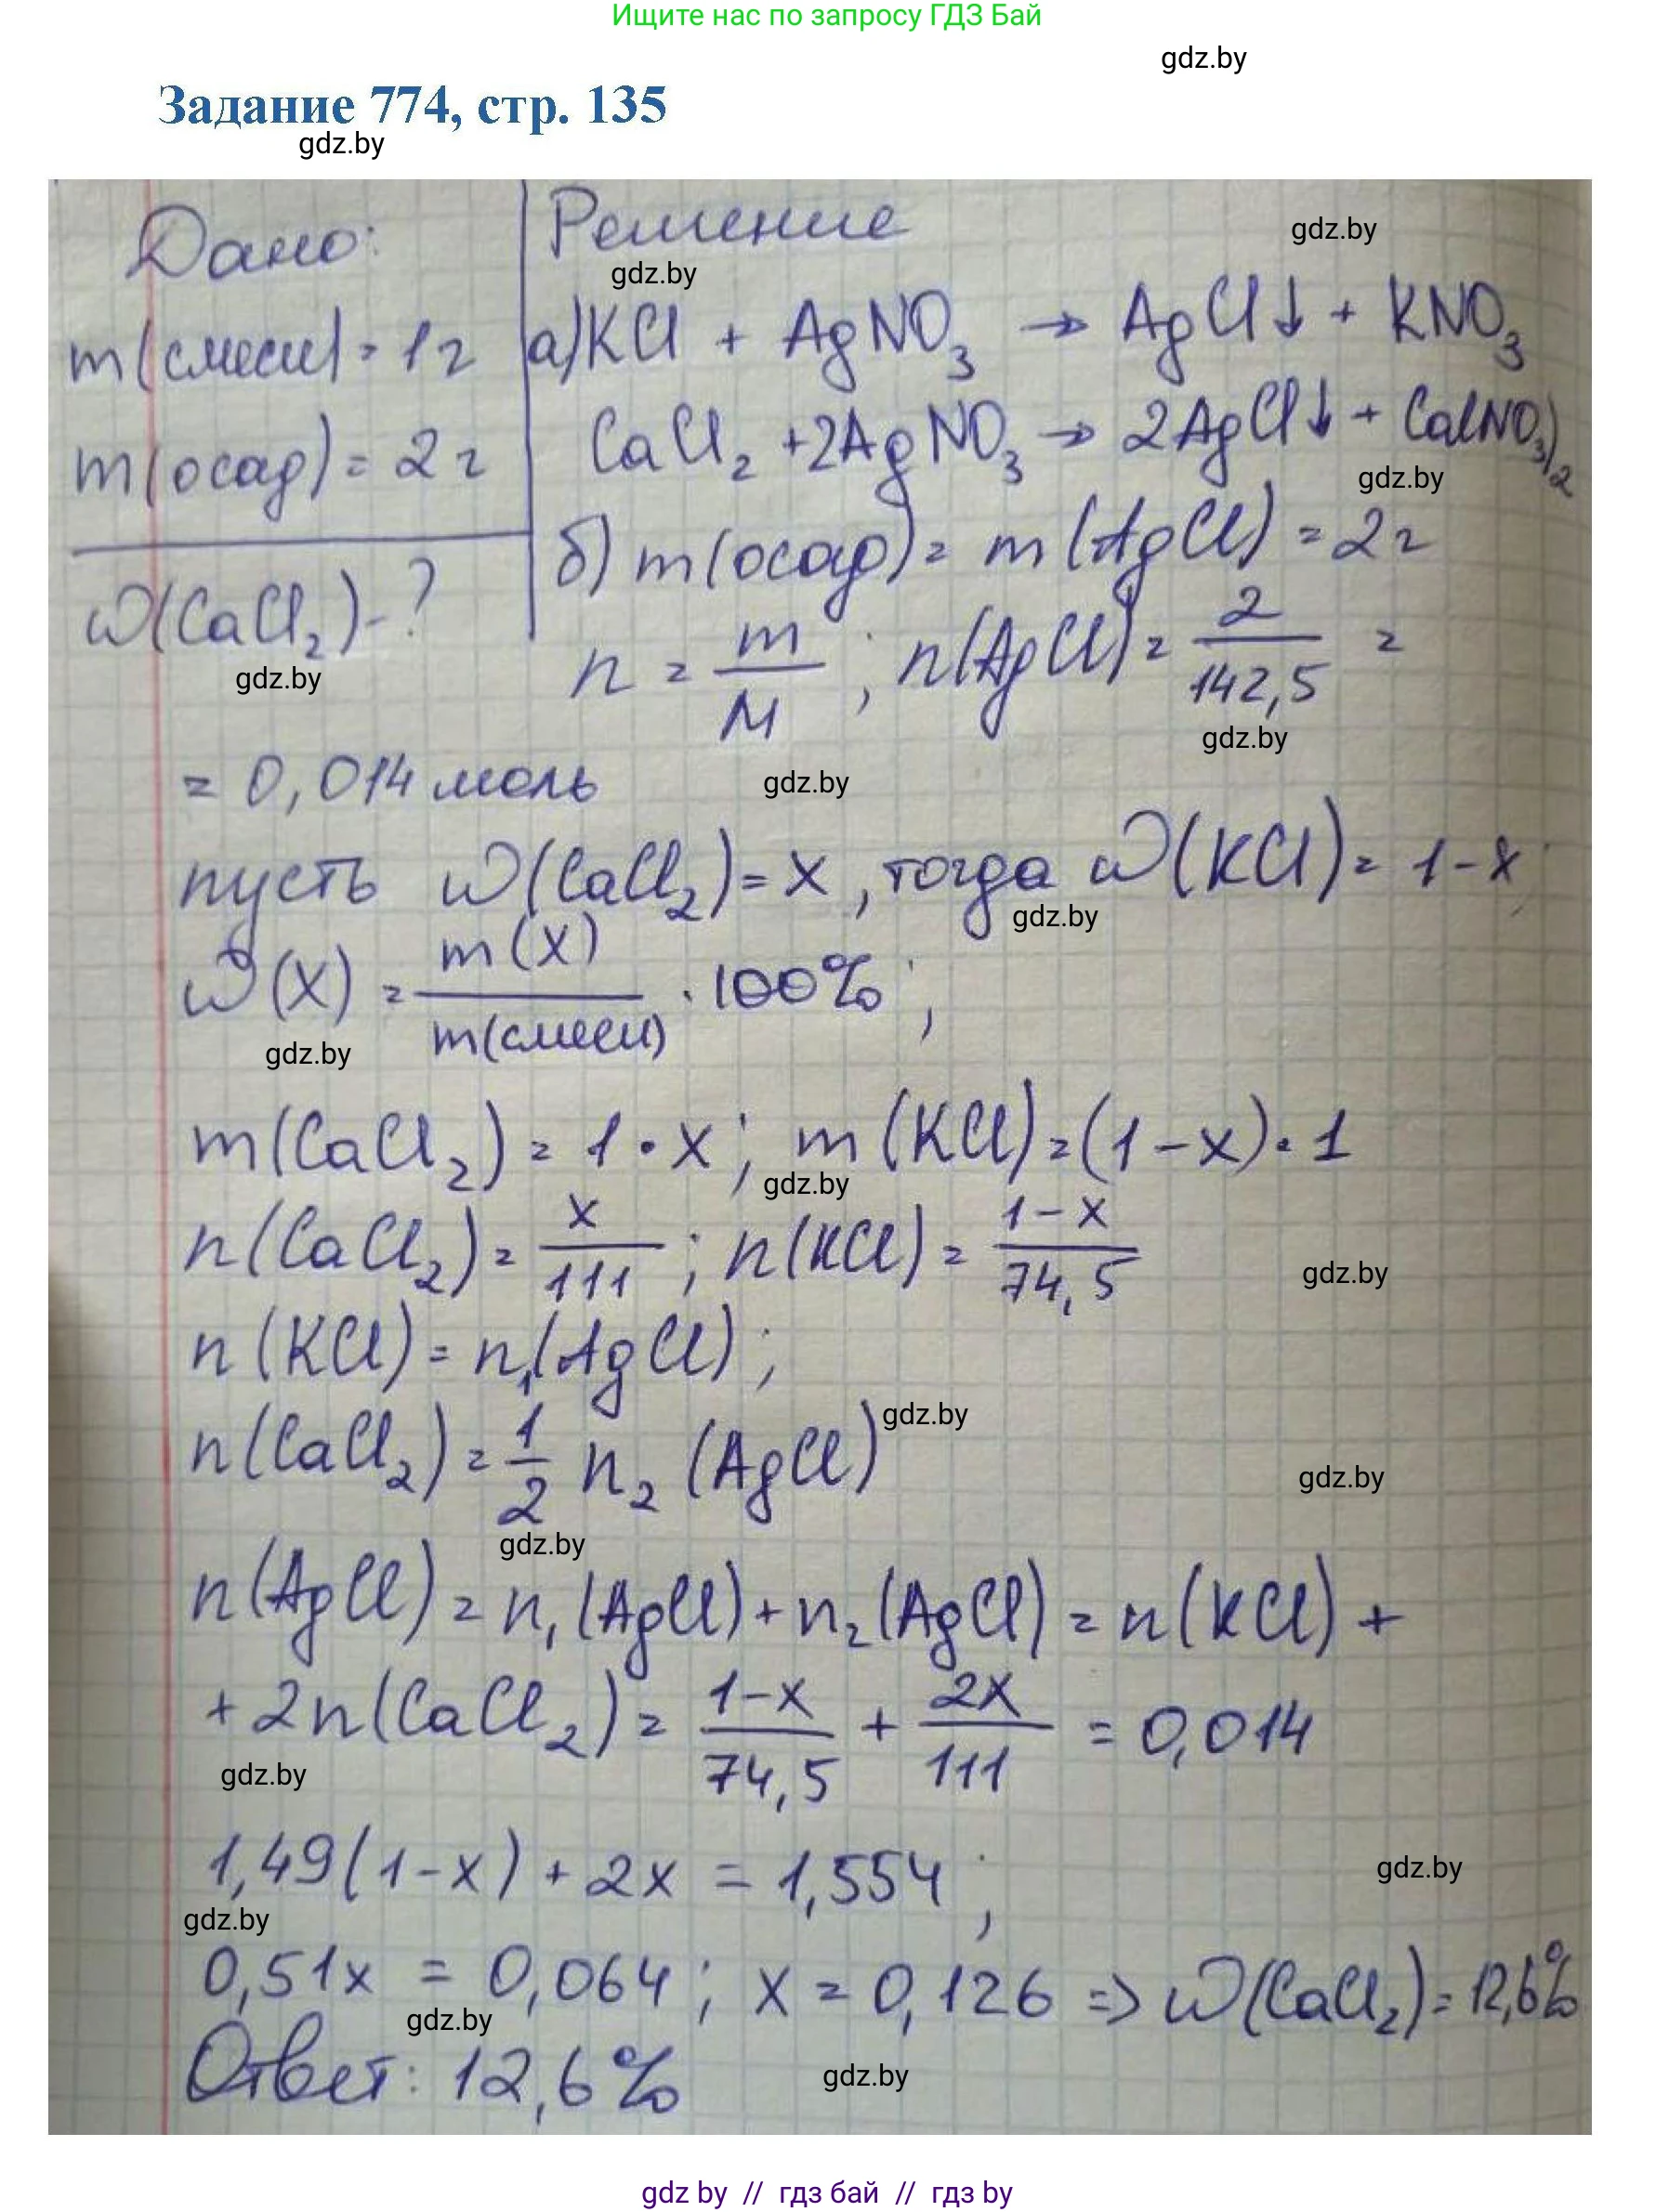 Ищите нас по запросу ГДЗ Бай
gdz.by
Задание 774, стр. 135
gdz.by
Дано:
m(смеси) = 1 г
m(осад) = 2 г
ω(CaCl₂) - ?
gdz.by
Решение
gdz.by
gdz.by
а) KCl + AgNO₃ → AgCl↓ + KNO₃
CaCl₂ + 2AgNO₃ → 2AgCl↓ + Ca(NO₃)₂
gdz.by
б) m(осад) = m(AgCl) = 2 г
n = m/M ; n(AgCl) = 2/142,5 =
gdz.by
= 0,014 моль
gdz.by
пусть ω(CaCl₂) = x, тогда ω(KCl) = 1-x;
gdz.by
ω(X) = m(X)/m(смеси) · 100% ;
gdz.by
m(CaCl₂) = 1 · x ; m(KCl) = (1-x) · 1
gdz.by
n(CaCl₂) = x/111 ; n(KCl) = 1-x/74,5
gdz.by
n(KCl) = n₁(AgCl) ;
n(CaCl₂) = 1/2 n₂ (AgCl)
gdz.by
gdz.by
gdz.by
n(AgCl) = n₁(AgCl) + n₂(AgCl) = n(KCl) +
+ 2n(CaCl₂) = 1-x/74,5 + 2x/111 = 0,014
gdz.by
1,49(1-x) + 2x = 1,554 ;
gdz.by
gdz.by
0,51x = 0,064 ; x = 0,126 => ω(CaCl₂) = 12,6%
gdz.by
Ответ: 12,6%
gdz.by
gdz by // гдз бай // гдз by